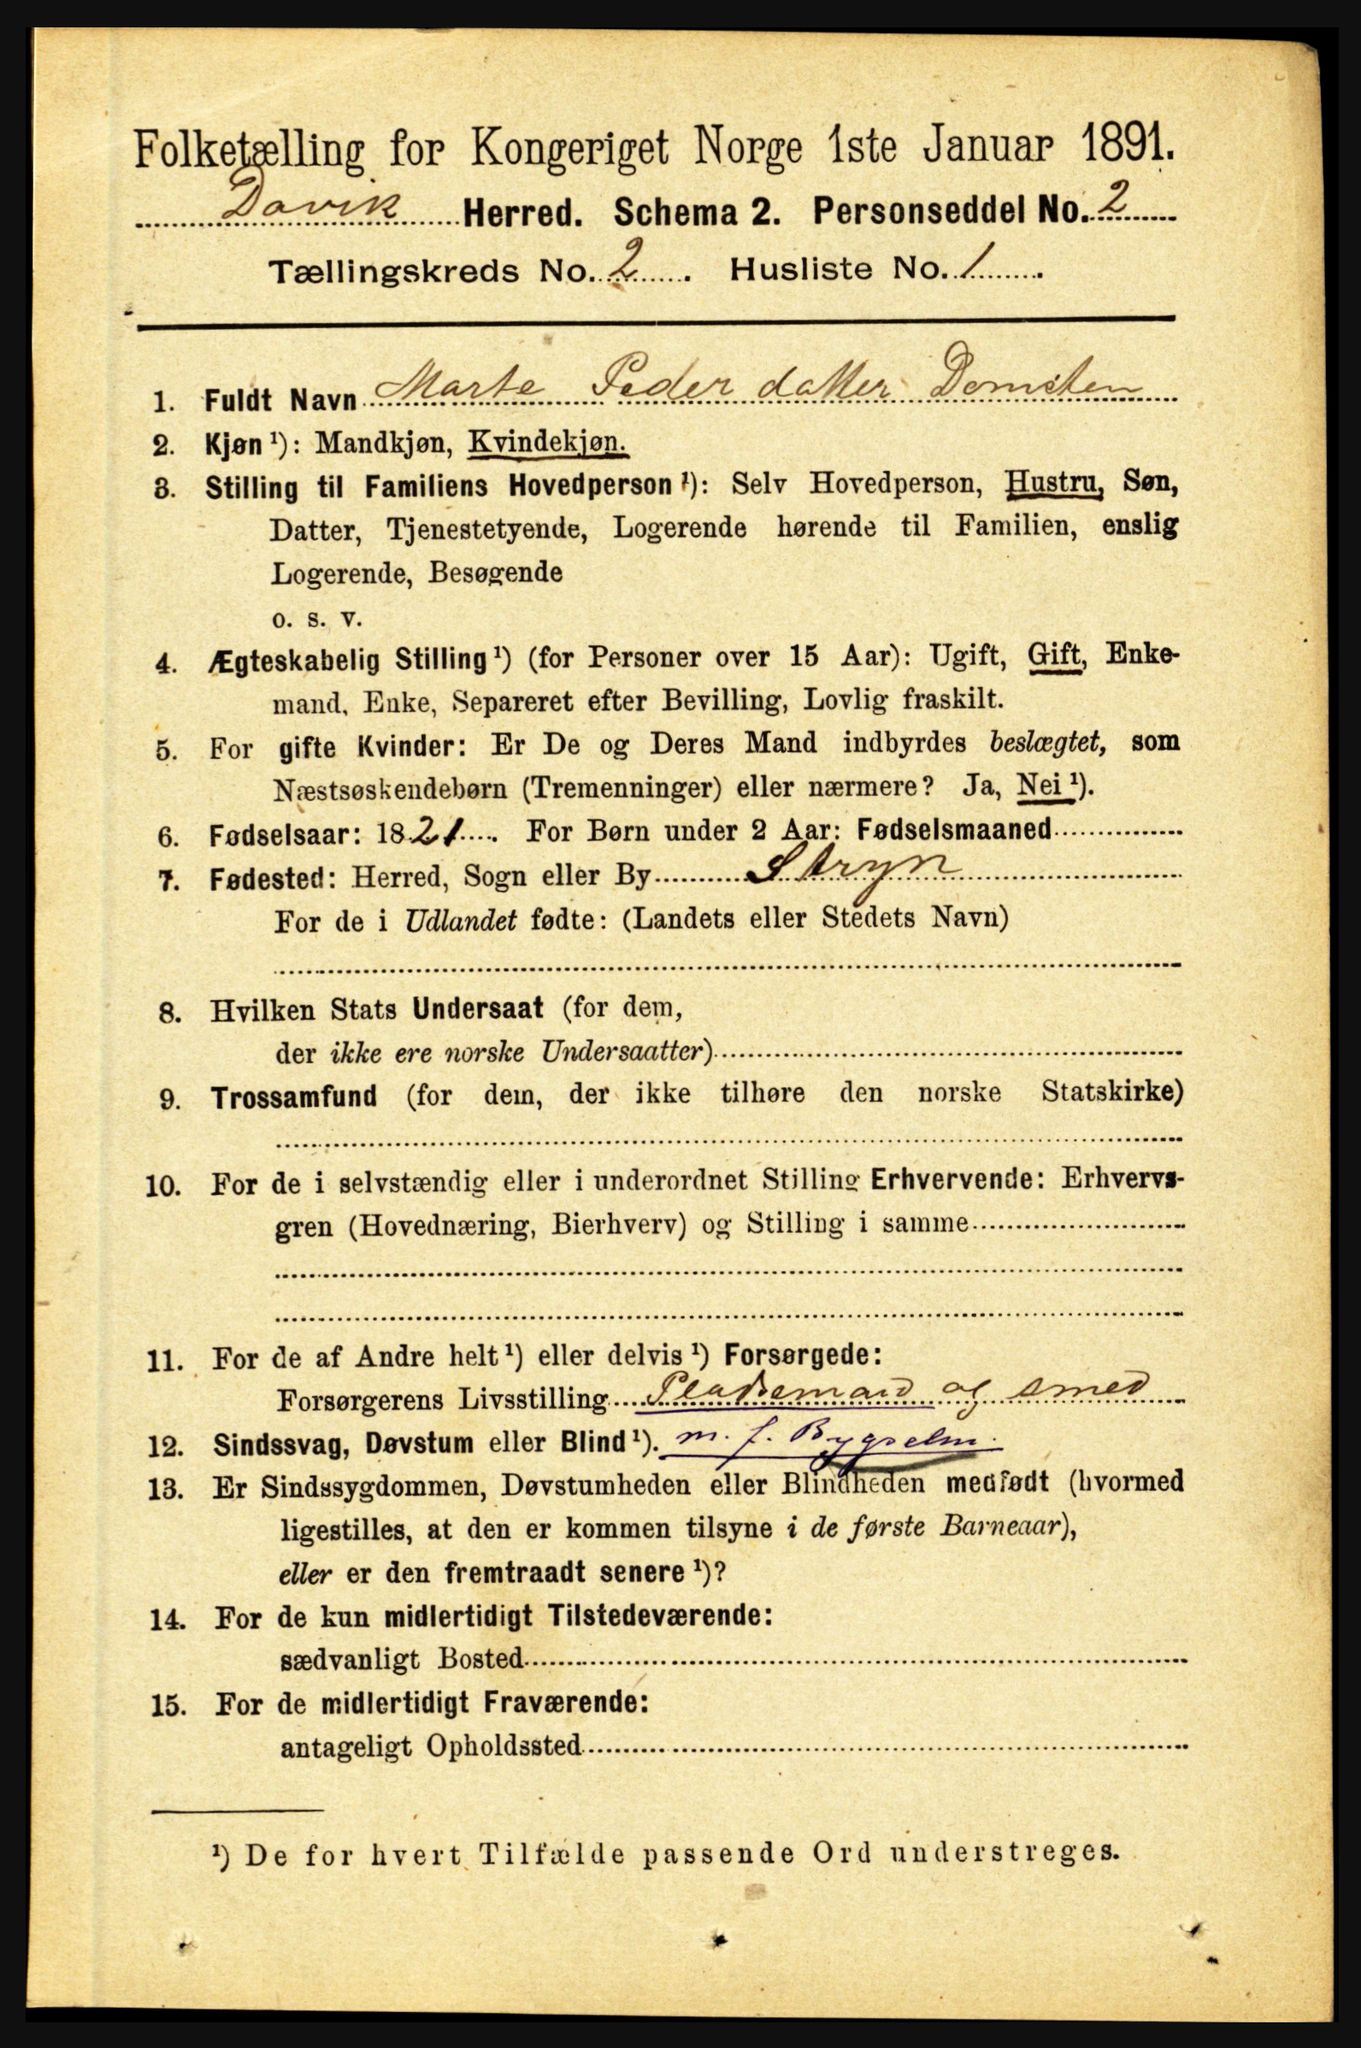 Folketælling for Kongeriget Norge 1ste Januar 1891.
Davik Herred. Schema 2. Personseddel No. 2
Tællingskreds No. 2. Husliste No. 1.
1. Fuldt Navn Marte Peder datter Domsten
2. Kjøn ¹): Mandkjøn, Kvindekjøn.
3. Stilling til Familiens Hovedperson ¹): Selv Hovedperson, Hustru, Søn,
Datter, Tjenestetyende, Logerende hørende til Familien, enslig
Logerende, Besøgende
o. s. v.
4. Ægteskabelig Stilling ¹) (for Personer over 15 Aar): Ugift, Gift, Enke-
mand, Enke, Separeret efter Bevilling, Lovlig fraskilt.
5. For gifte Kvinder: Er De og Deres Mand indbyrdes beslægtet, som
Næstsøskendebørn (Tremenninger) eller nærmere? Ja, Nei ¹).
6. Fødselsaar: 1821. For Børn under 2 Aar: Fødselsmaaned
7. Fødested: Herred, Sogn eller By Stryn
For de i Udlandet fødte: (Landets eller Stedets Navn)
8. Hvilken Stats Undersaat (for dem,
der ikke ere norske Undersaatter)
9. Trossamfund (for dem, der ikke tilhøre den norske Statskirke)
10. For de i selvstændig eller i underordnet Stilling Erhvervende: Erhvervs-
gren (Hovednæring, Bierhverv) og Stilling i samme
11. For de af Andre helt ¹) eller delvis ¹) Forsørgede:
Forsørgerens Livsstilling Pladsemand og smed
12. Sindssvag, Døvstum eller Blind ¹). m. f. Bygselm.
13. Er Sindssygdommen, Døvstumheden eller Blindheden medfødt (hvormed
ligestilles, at den er kommen tilsyne i de første Barneaar),
eller er den fremtraadt senere ¹)?
14. For de kun midlertidigt Tilstedeværende:
sædvanligt Bosted
15. For de midlertidigt Fraværende:
antageligt Opholdssted
¹) De for hvert Tilfælde passende Ord understreges.